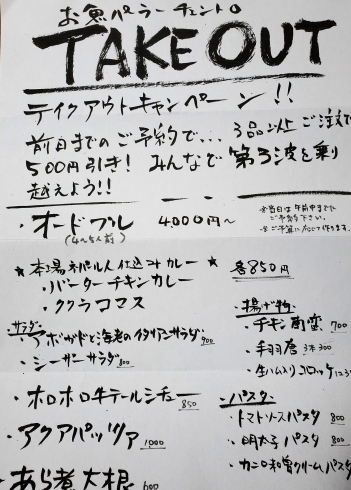 お魚パーラーチェントロ
TAKE OUT
テイクアウトキャンペーン!!
前日までのご予約で… 3品以上ご注文で
500円引き! みんなで第3波を乗り
越えよう!!
・オードブル 4000円〜
(4〜5人前)
※当日は午前中までに
ご予約下さい。
※ご予算に応じて作ります。
★本場ネパール人仕込みカレー 各850円
・バターチキンカレー
・ククラコマス
・サラダ・
・アボガドと海老のイタリアンサラダ 900
・シーザーサラダ 800
・ホロホロ牛テールシチュー 850
・アクアパッツァ 1000
・あら煮大根 600
・揚げ物・
・チキン南蛮 700
・手羽唐 3本300
・生ハム入りコロッケ
・パスタ・
・トマトソースパスタ 800
・明太子パスタ 800
・カニの和風クリームパスタ